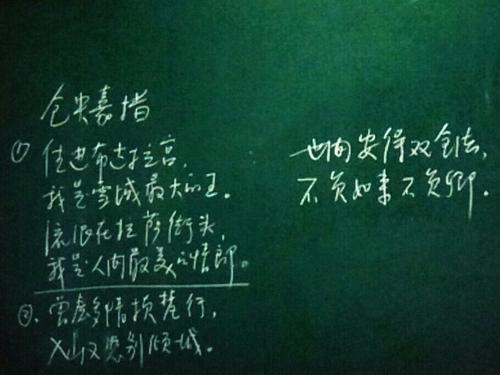 仓央嘉措
① 住进布达拉宫，
我是雪域最大的王。
流浪在拉萨街头，
我是人间最美的情郎。
②. 曾虑多情损梵行，
入山又恐别倾城。
世间安得双全法，
不负如来不负卿。